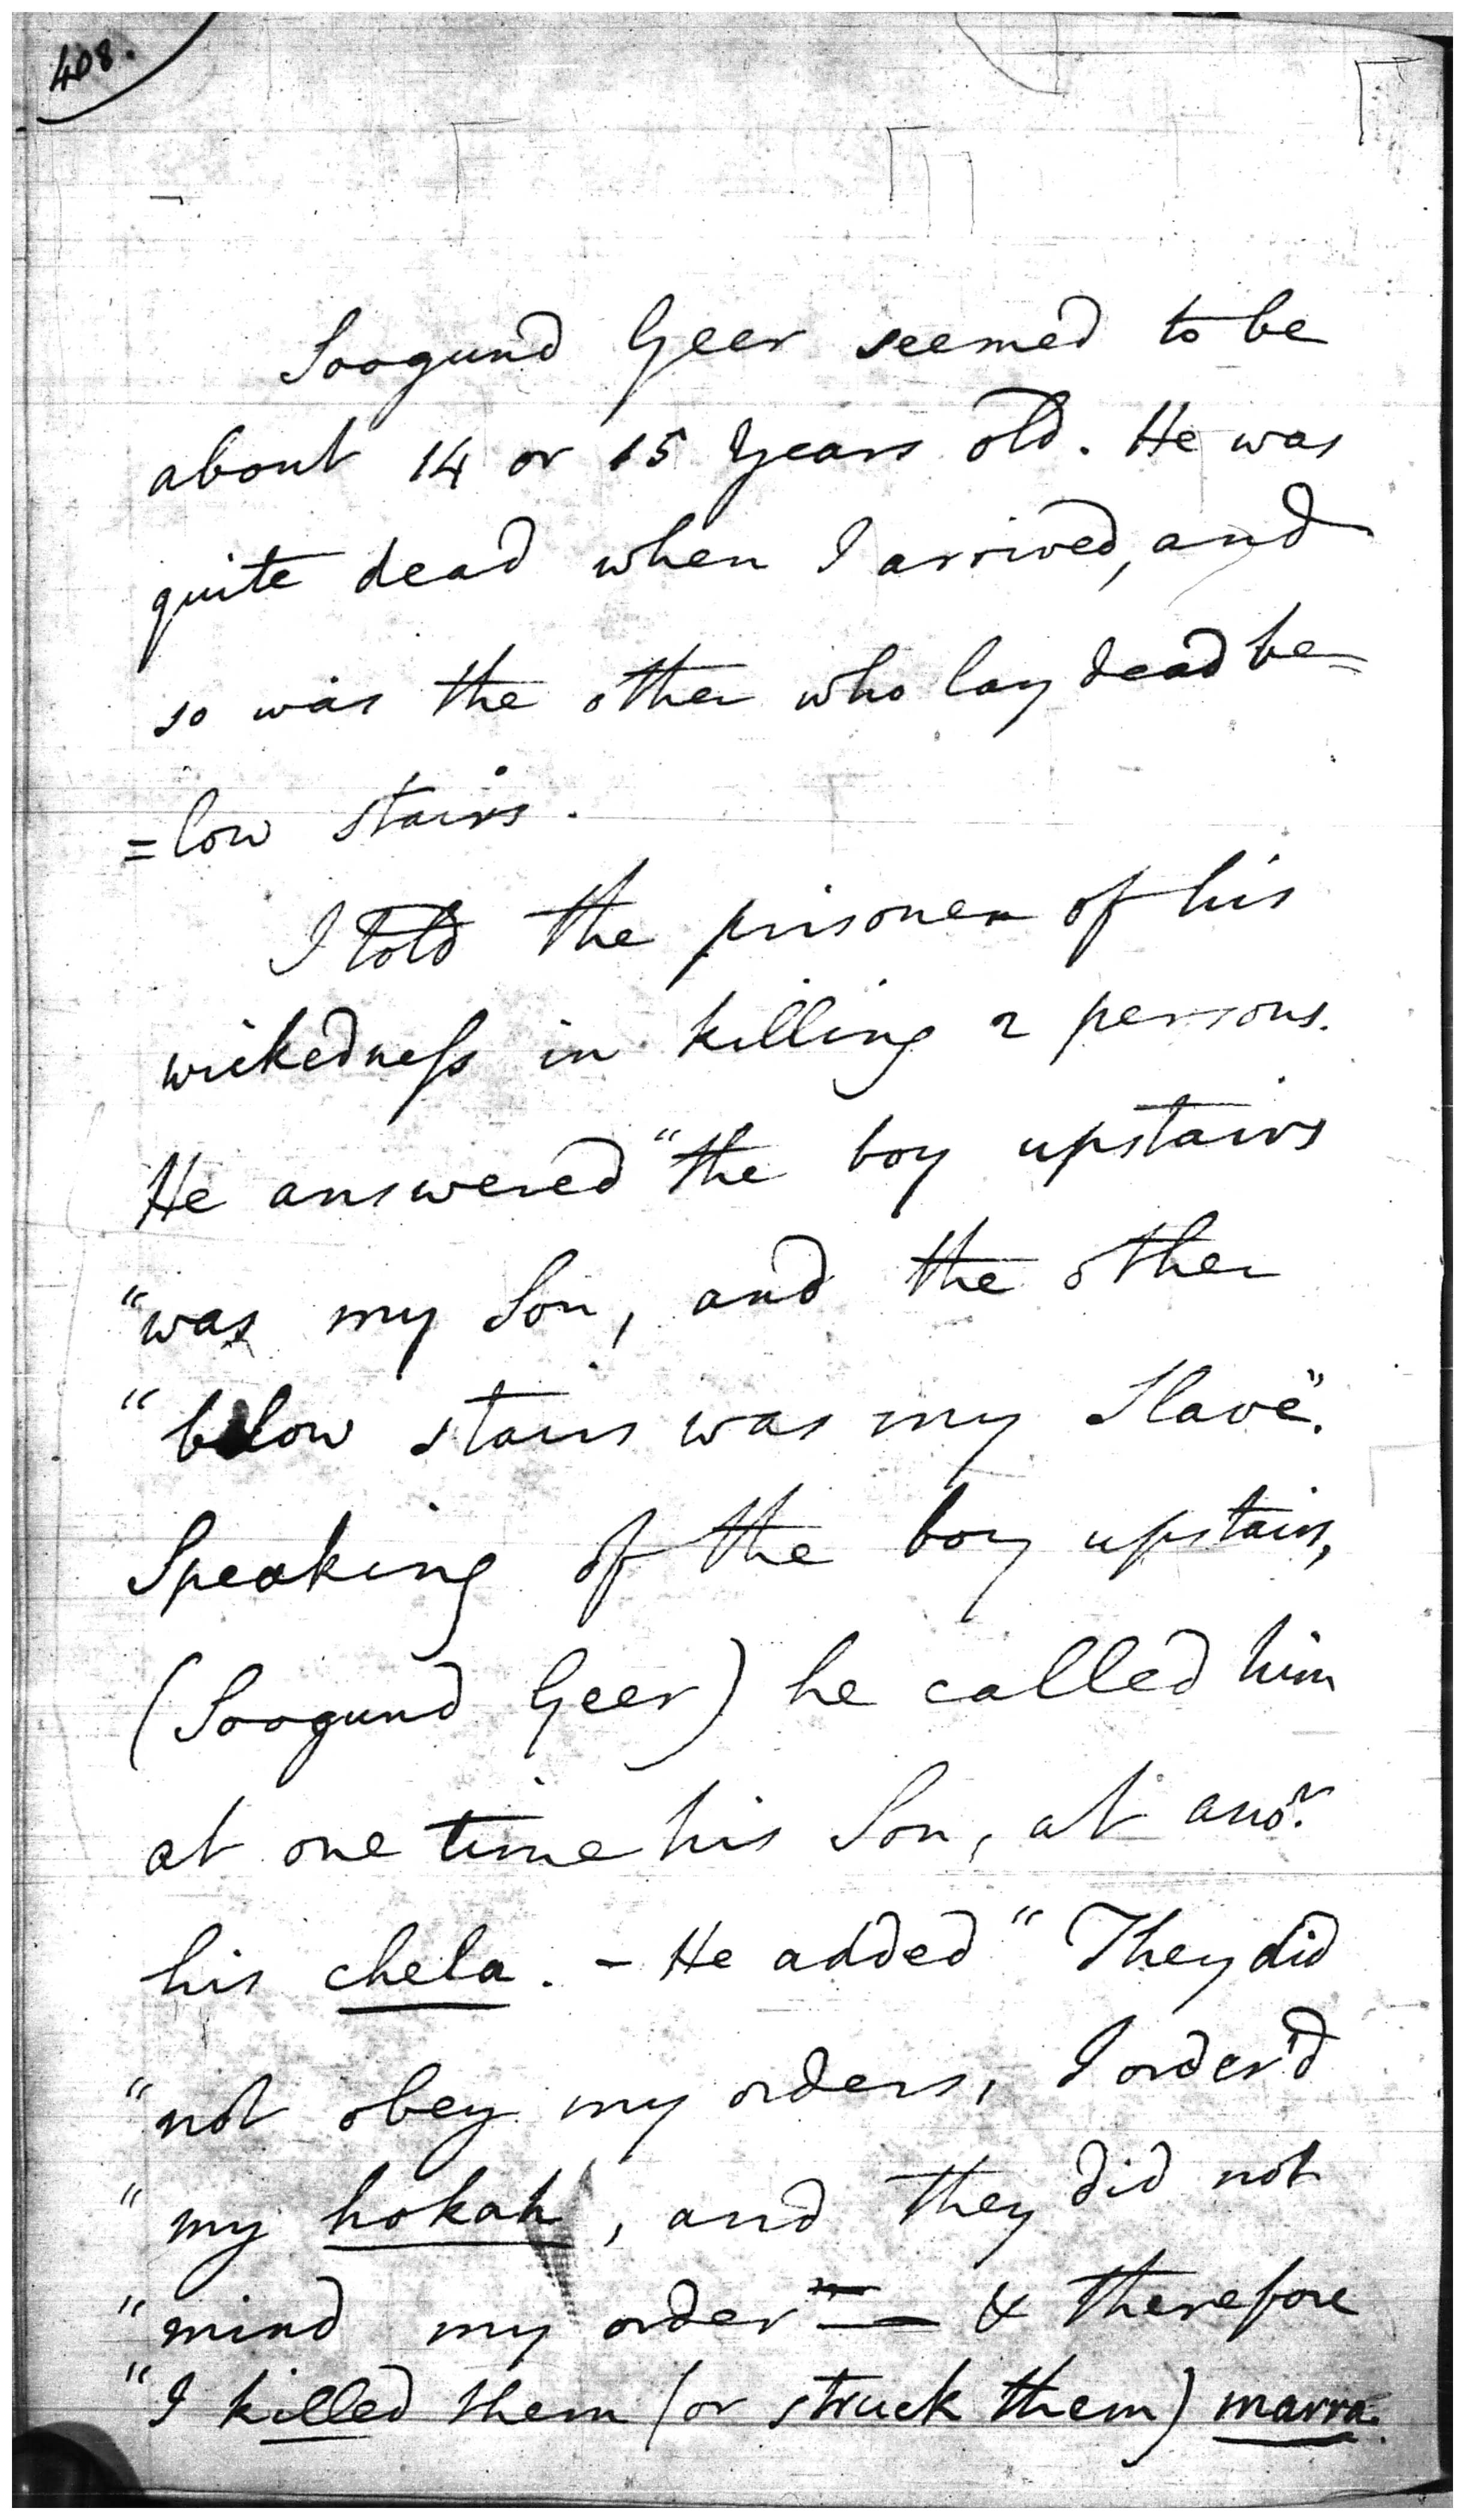 408.
Soogund Geer seemed to be
about 14 or 15 Years old. He was
quite dead when I arrived, and
so was the other who lay dead be=
=low stairs.
I told the prisoner of his
wickedness in killing 2 persons.
He answered "the boy upstairs
"was my Son, and the other
"below stairs was my Slave".
Speaking of the boy upstairs,
(Soogund Geer) he called him
at one time his Son, at anor.
his chela. - He added "They did
"not obey my orders, I order'd
"my hokah, and they did not
"mind my order — & therefore
"I killed them (or struck them) marra.